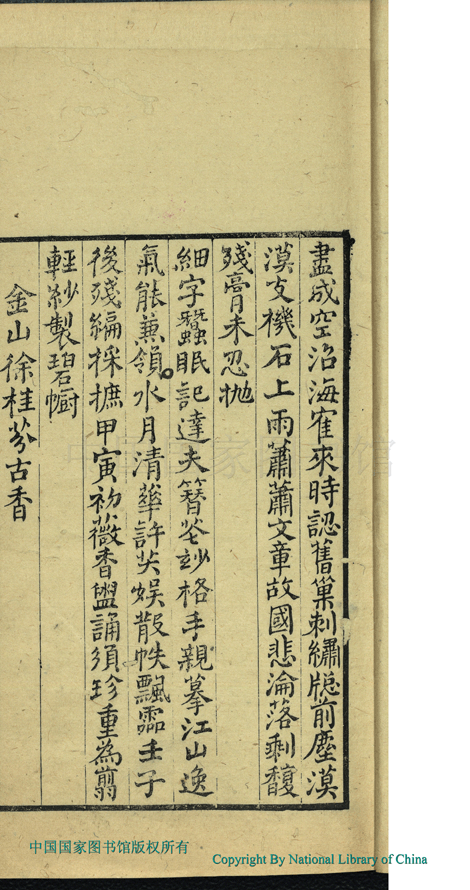 盡成空沼海寉來時認舊巢刺繡牕前塵漠
漠支機石上雨蕭蕭文章故國悲淪落剩馥
殘膏未忍抛
細字蠶眠記達夫簪花妙格手親摹江山逸
氣能兼領水月清華許共娛散帙飄零壬子
後殘編採摭甲寅初薇香盥誦須珍重為翦
輕紗製碧幮
金山徐桂芬古香
中国国家图书馆版权所有
Copyright By National Library of China